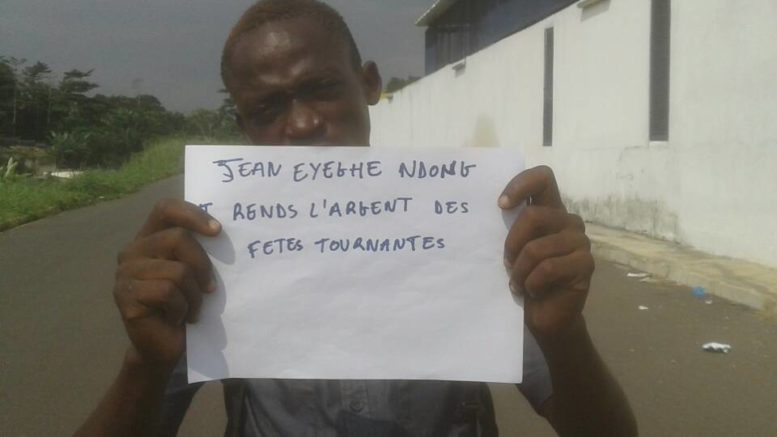 JEAN EYEGHE NDONG
RENDS L'ARGENT DES
FETES TOURNANTES